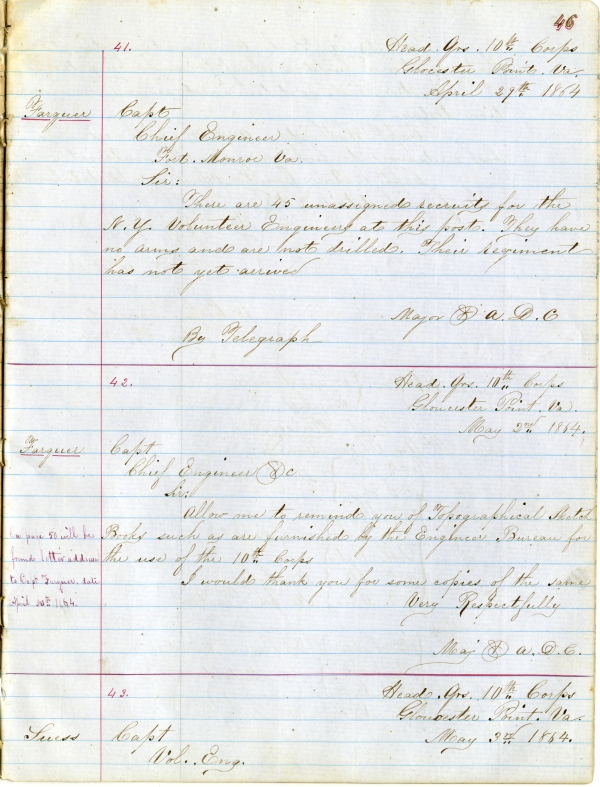 46
41.
Head. Qrs. 10th Corps
Glocester Point. Va.
April 29th 1864
Farquer Capt
Chief Engineer
Fort. Monroe Va.
Sir:
There are 45 unassigned recruits for the
N.Y. Volunteer Engineers at this post. They have
no arms and are not drilled. Their regiment
has not yet arrived
Major & A. D. C
By Telegraph
42.
Head. Qrs. 10th Corps
Gloucester Point. Va.
May 2nd 1864.
Farquer Capt
Chief Engineer &c
Sir:
Allow me to remind you of Topographical Sketch
Books such as are furnished by the Engineer Bureau for
the use of the 10th Corps
I would thank you for some copies of the same
Very Respectfully
Maj & A. D. C.
on page 50 will be
found letter address
to Capt Farquer, date
April 30th 1864.
43.
Head. Qrs. 10th Corps
Gloucester Point. Va.
May 3d 1864.
Suess Capt
Vol. Eng.